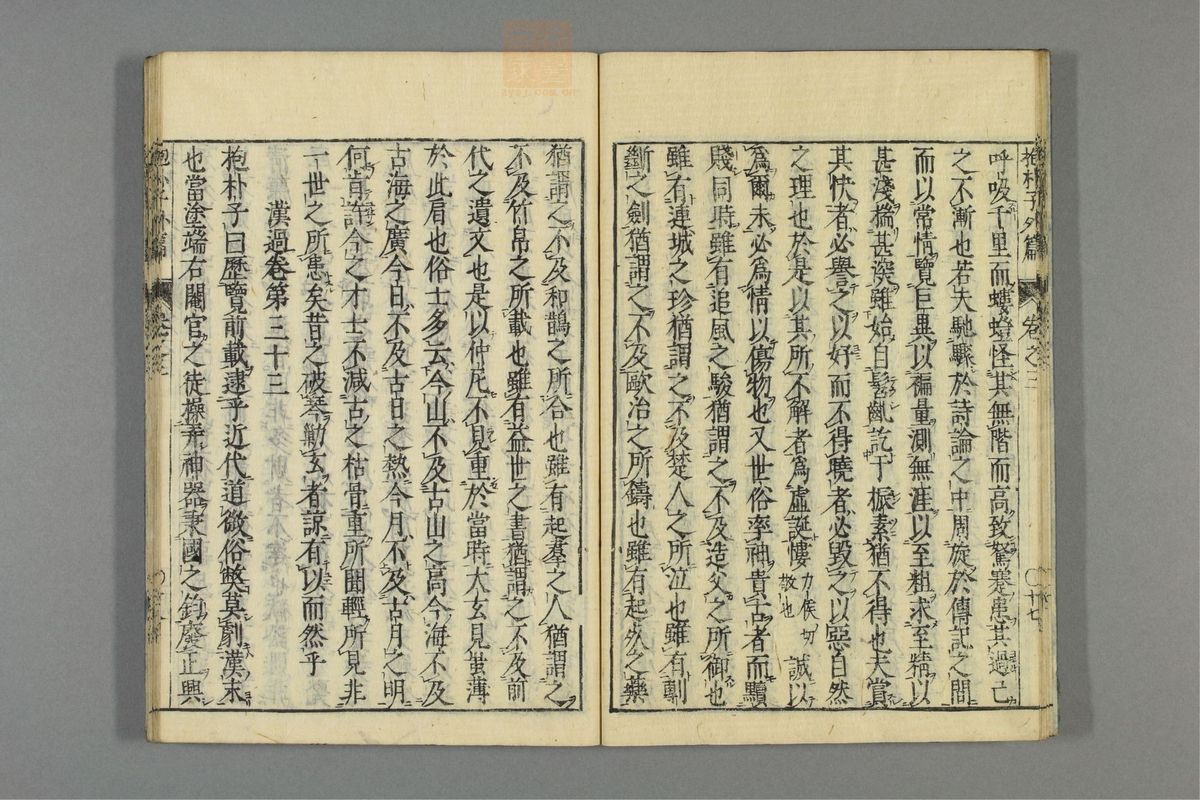 抱朴子外篇 卷之三 〇十七
呼吸千里而螻螘怪其無階而高致駑蹇患其過己
之不漸也若夫馳驟於詩論之中周旋於傳記之間
而以常情覽巨異以褊量測無涯以至粗求至精以
甚淺揣甚深雖始自髫齓訖于振素猶不得也夫賞
其快者必譽之以好而不得曉者必毀之以惡自然
之理也於是以其所不解者爲虛誕慺力候切敬也誠以
爲爾未必爲情以傷物也又世俗率神貴古者而黷
賤同時雖有追風之駿猶謂之不及造父之所御也
雖有連城之珍猶謂之不及楚人之所泣也雖有剸
斷之劍猶謂之不及歐冶之所鑄也雖有起死之藥
猶謂之不及和鵲之所合也雖有起羣之人猶謂之
不及竹帛之所載也雖有益世之書猶謂之不及前
代之遺文也是以仲尼不見重於當時大玄見蚩薄
於此肩也俗士多云今山不及古山之高今海不及
古海之廣今日不及古日之熱今月不及古月之明
何肯許今之才士不減古之枯骨重所聞輕所見非
一世之所患矣昔之破琴勦玄者諒有以而然乎
漢過卷第三十三
抱朴子曰歷覽前載逮乎近代道微俗獘莫劇漢末
也當塗端右閹官之徒操弄神器秉國之鈞廢正興